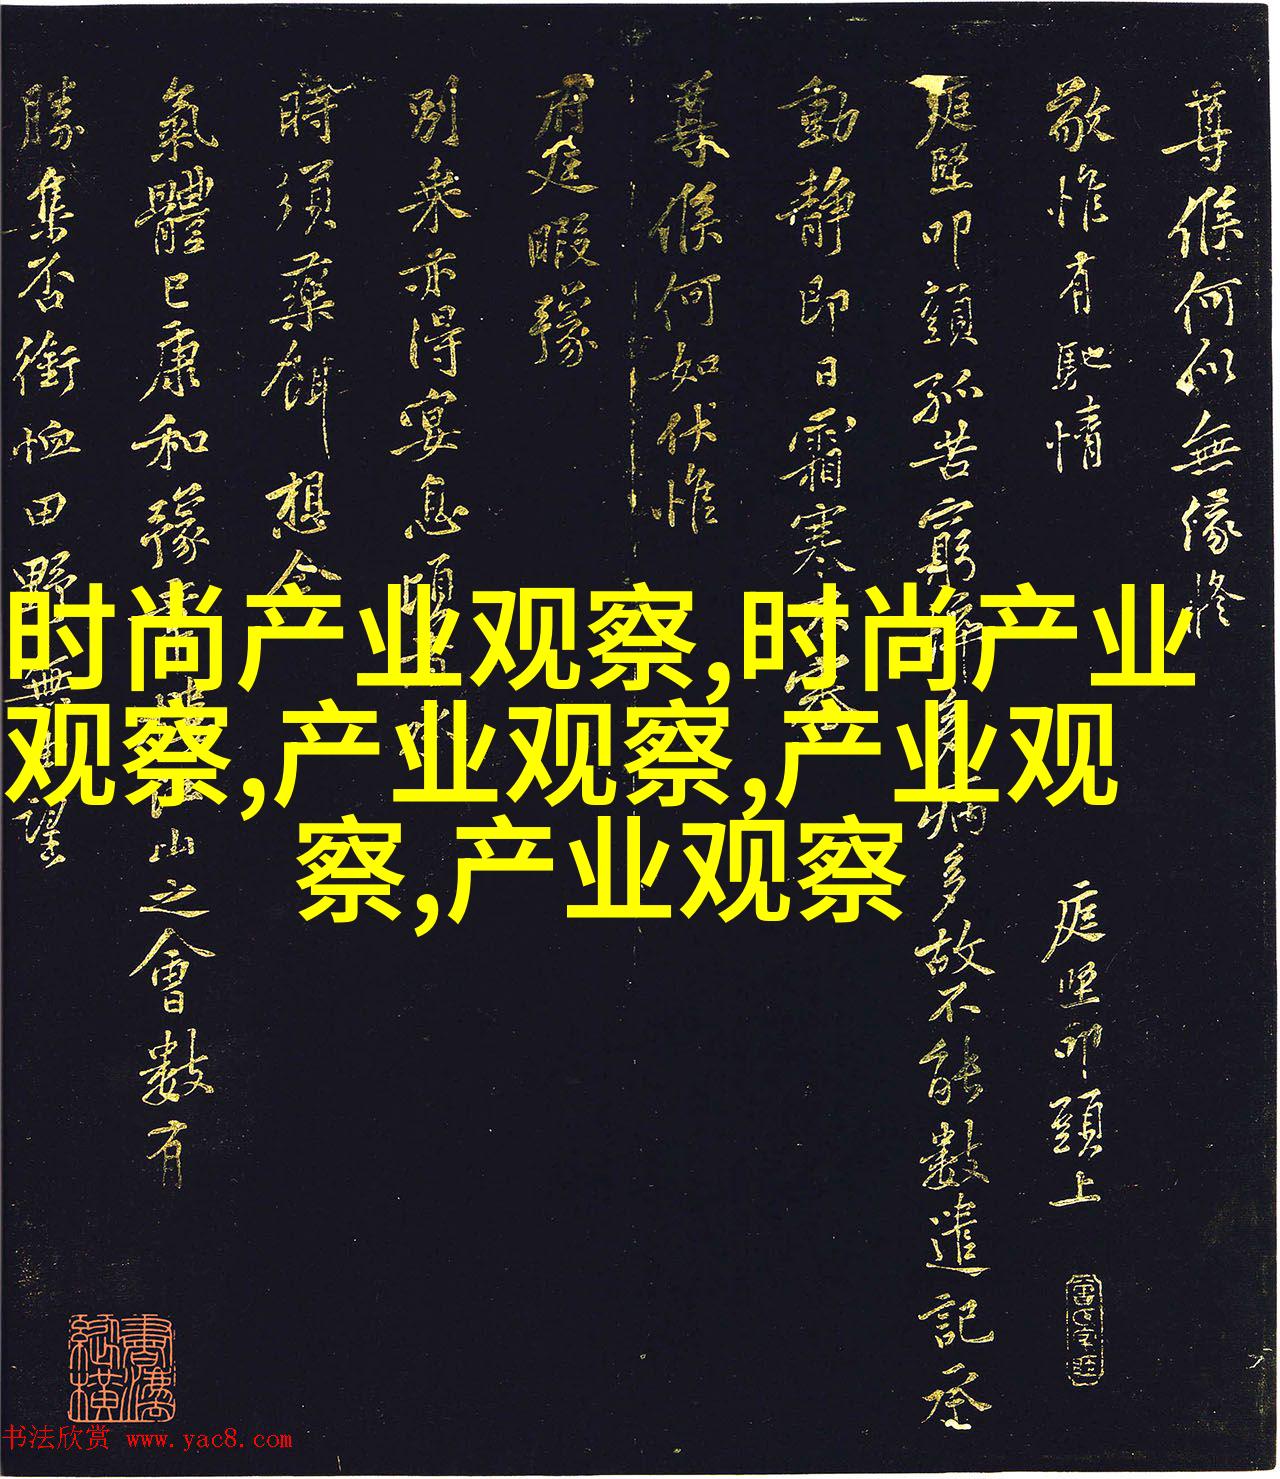 尊候何似無緣修
敬惟有馳情 庭堅叩頭上
庭堅叩頭孤苦窮 病多故不能數遣記承
動靜即日霜寒
尊候何如伏惟
府廷暇豫
別乘亦得宴息頤
時須藥餌想念
氣體已康和豫 山之會數有
勝集否銜恤田野無由望
时尚产业观察,时尚产业
观察,产业观察,产业观
察,产业观察
书法欣赏 www.yac8.com